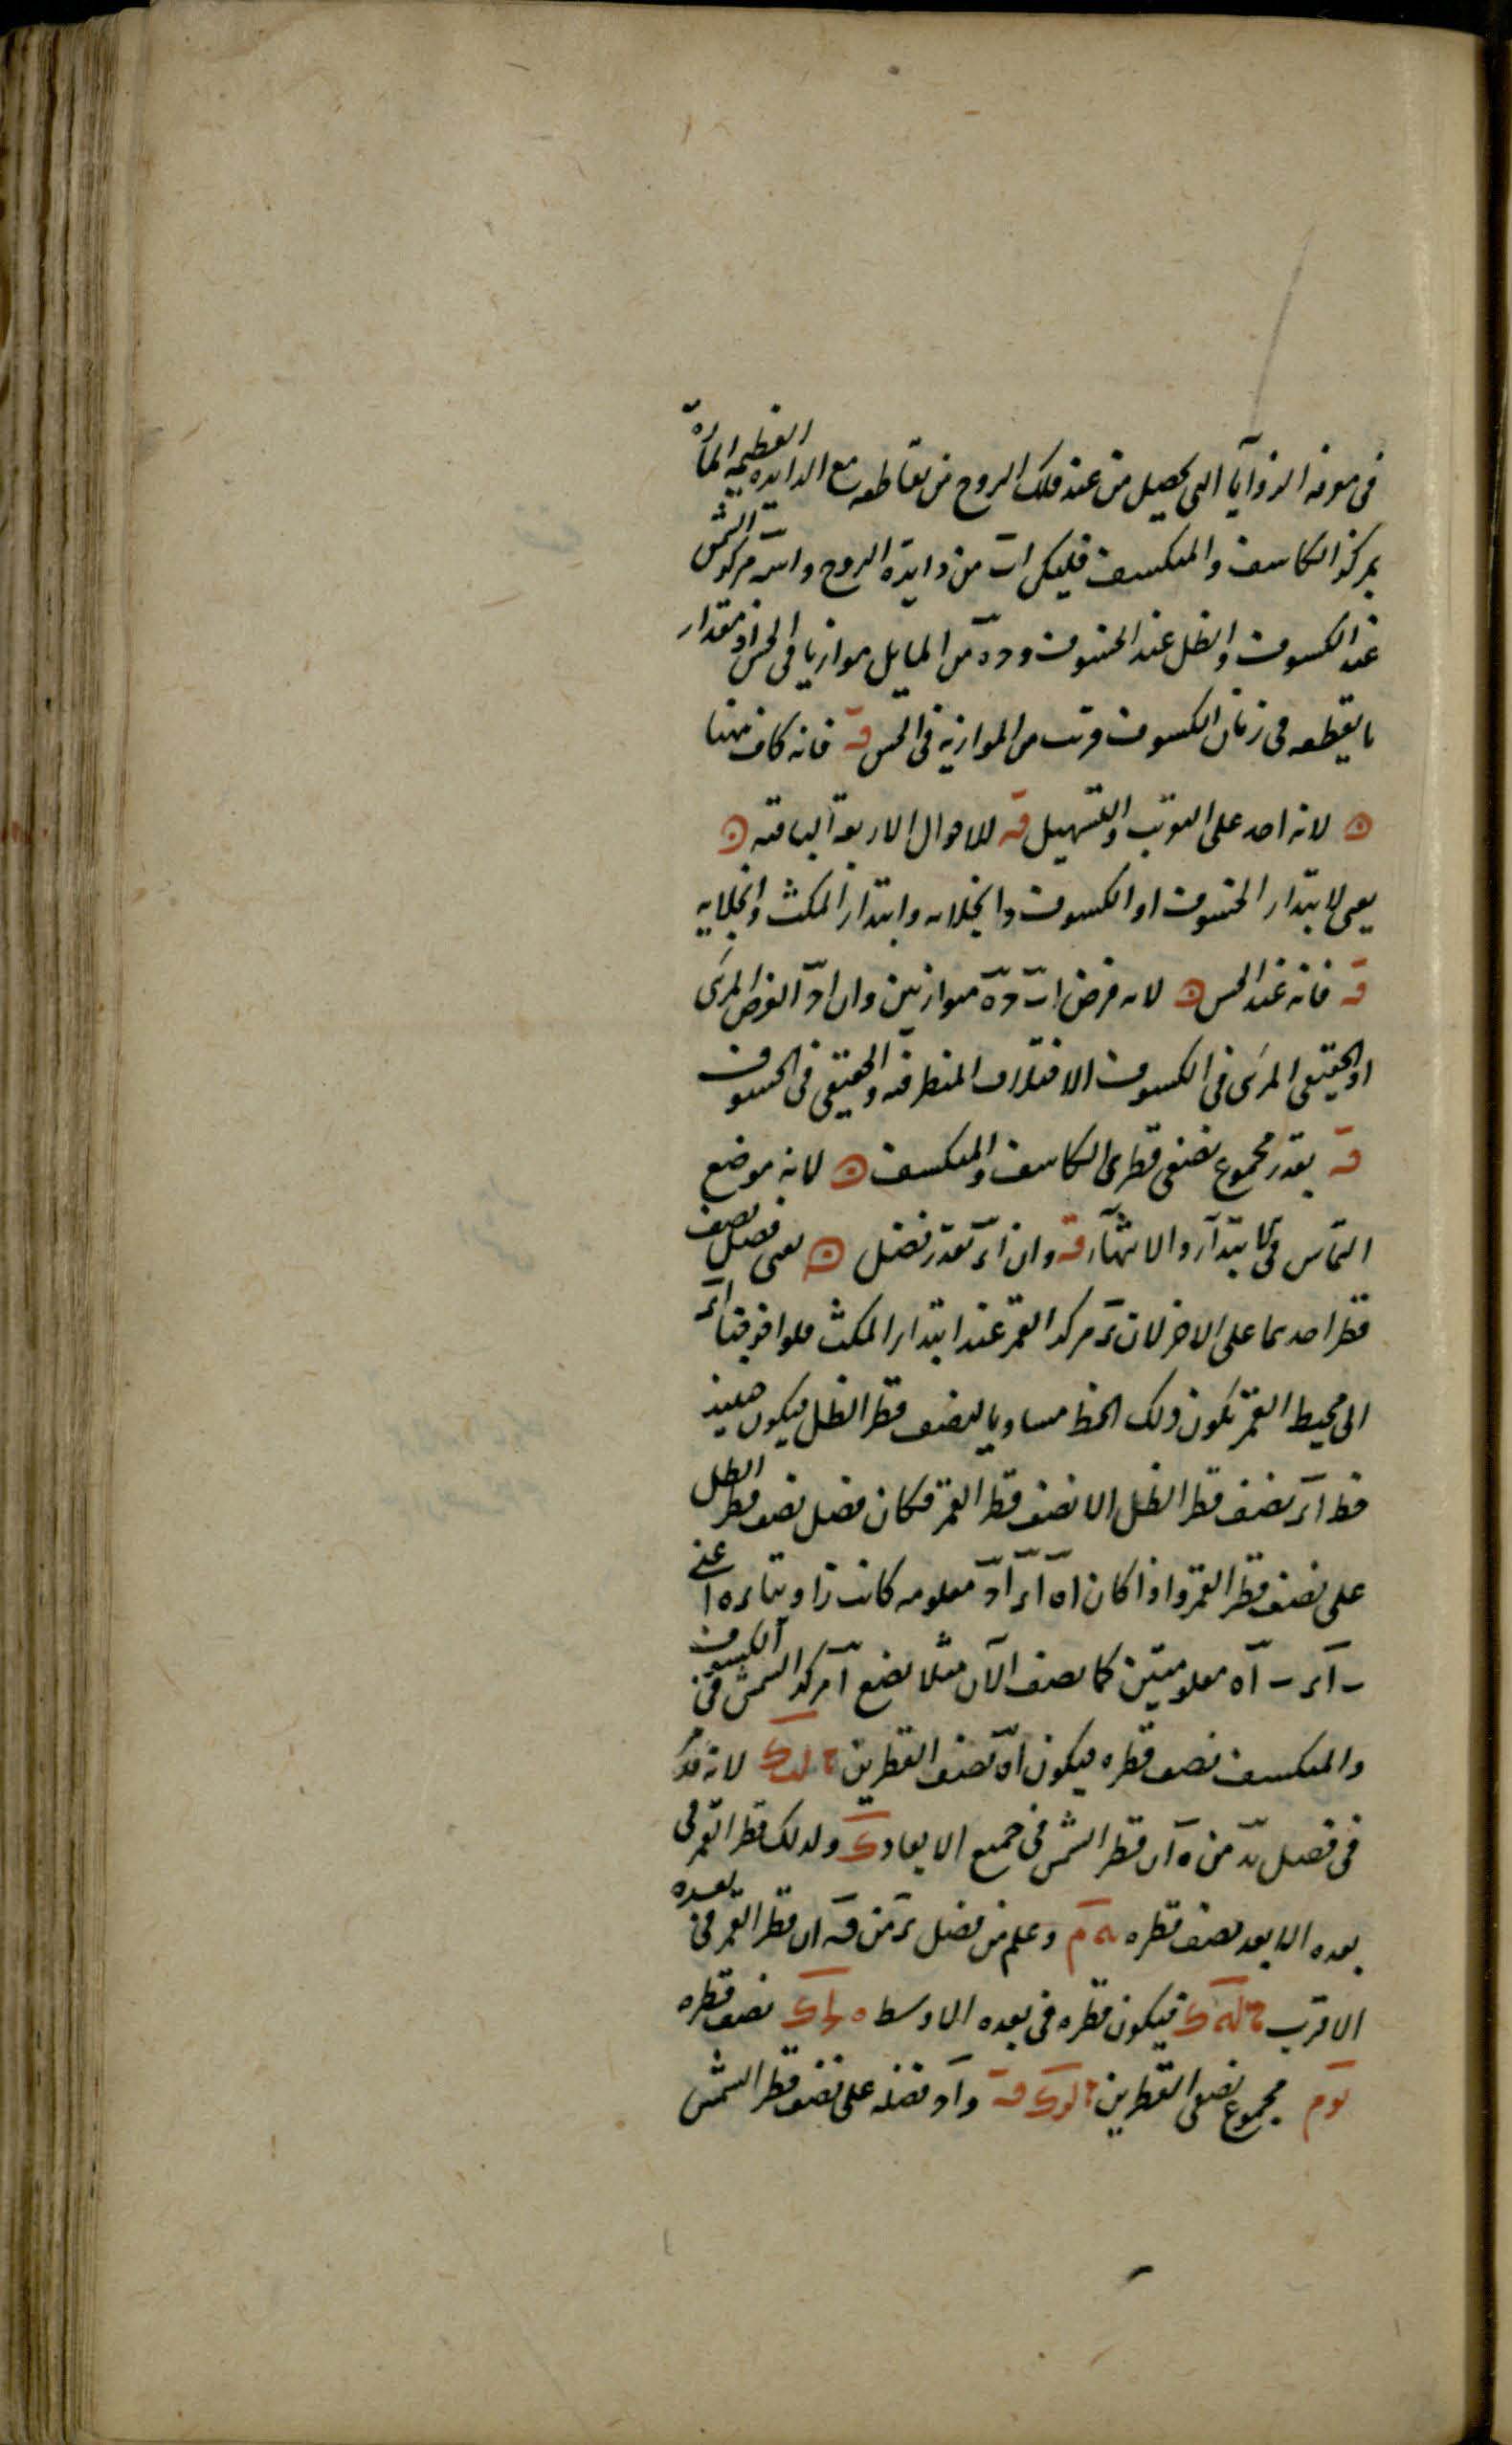 فى معرفة الزوايا التى يحصل من عند فلك البروج من تقاطعه مع الدايرة العظيمة المارة
بمركز الكاسف والمنكسف فليكن اب من دايرة البروج وا مركز الشمس
عند الكسوف والظل عند الخسوف و د ه من المايل موازيا فى الحس اذ مقدار
ما يقطعه فى زمان الكسوف قريب من الموازية فى الحس قه فانه كاف ههنا
لانه احد على التقريب والتسهيل قه للاحوال الاربعة الباقية
يعنى لابتداء الخسوف او الكسوف وانجلائه وابتداء المكث وانجلايه
قه فانه عند الحس لانه فرض اب د ه متوازيين وان اد العرض المرئى
او الحقيقى المرئى فى الكسوف لاختلاف المنظر فيه والحقيقى فى الخسوف
قه بقدر مجموع نصفى قطرى الكاسف والمنكسف لانه موضع
التماس فى الابتداء والانتهاء قه وان ار بقدر فضل يعنى فضل نصف
قطر احدهما على الاخر لان ر مركز القمر عند ابتداء المكث فلو اخرجنا ار
الى محيط القمر يكون ذلك الخط مساويا لنصف قطر الظل فيكون حينئذ
خط ار نصف قطر الظل الا نصف قطر القمر فكان فضل نصف قطر الظل
على نصف قطر القمر واذا كان اه ار اد معلومه كانت زاويتا ر ه اعنى
ب ا ر ب ا ه معلومتين كما نصف الآن مثلا نضع ا مركز الشمس فى الكسوف
والمنكسف نصف قطره فيكون اه نصف القطرين لانه قد مر
فى فصل يد من ه ان قطر الشمس فى جميع الابعاد وكذلك قطر القمر فى
بعده الابعد نصف قطره يه م وعلم من فصل ر من قه ان قطر القمر فى بعده
الاقرب فيكون قطره فى بعده الاوسط نصف قطره
يو م مجموع نصفى القطرين قه واد فضله على نصف قطر الشمس